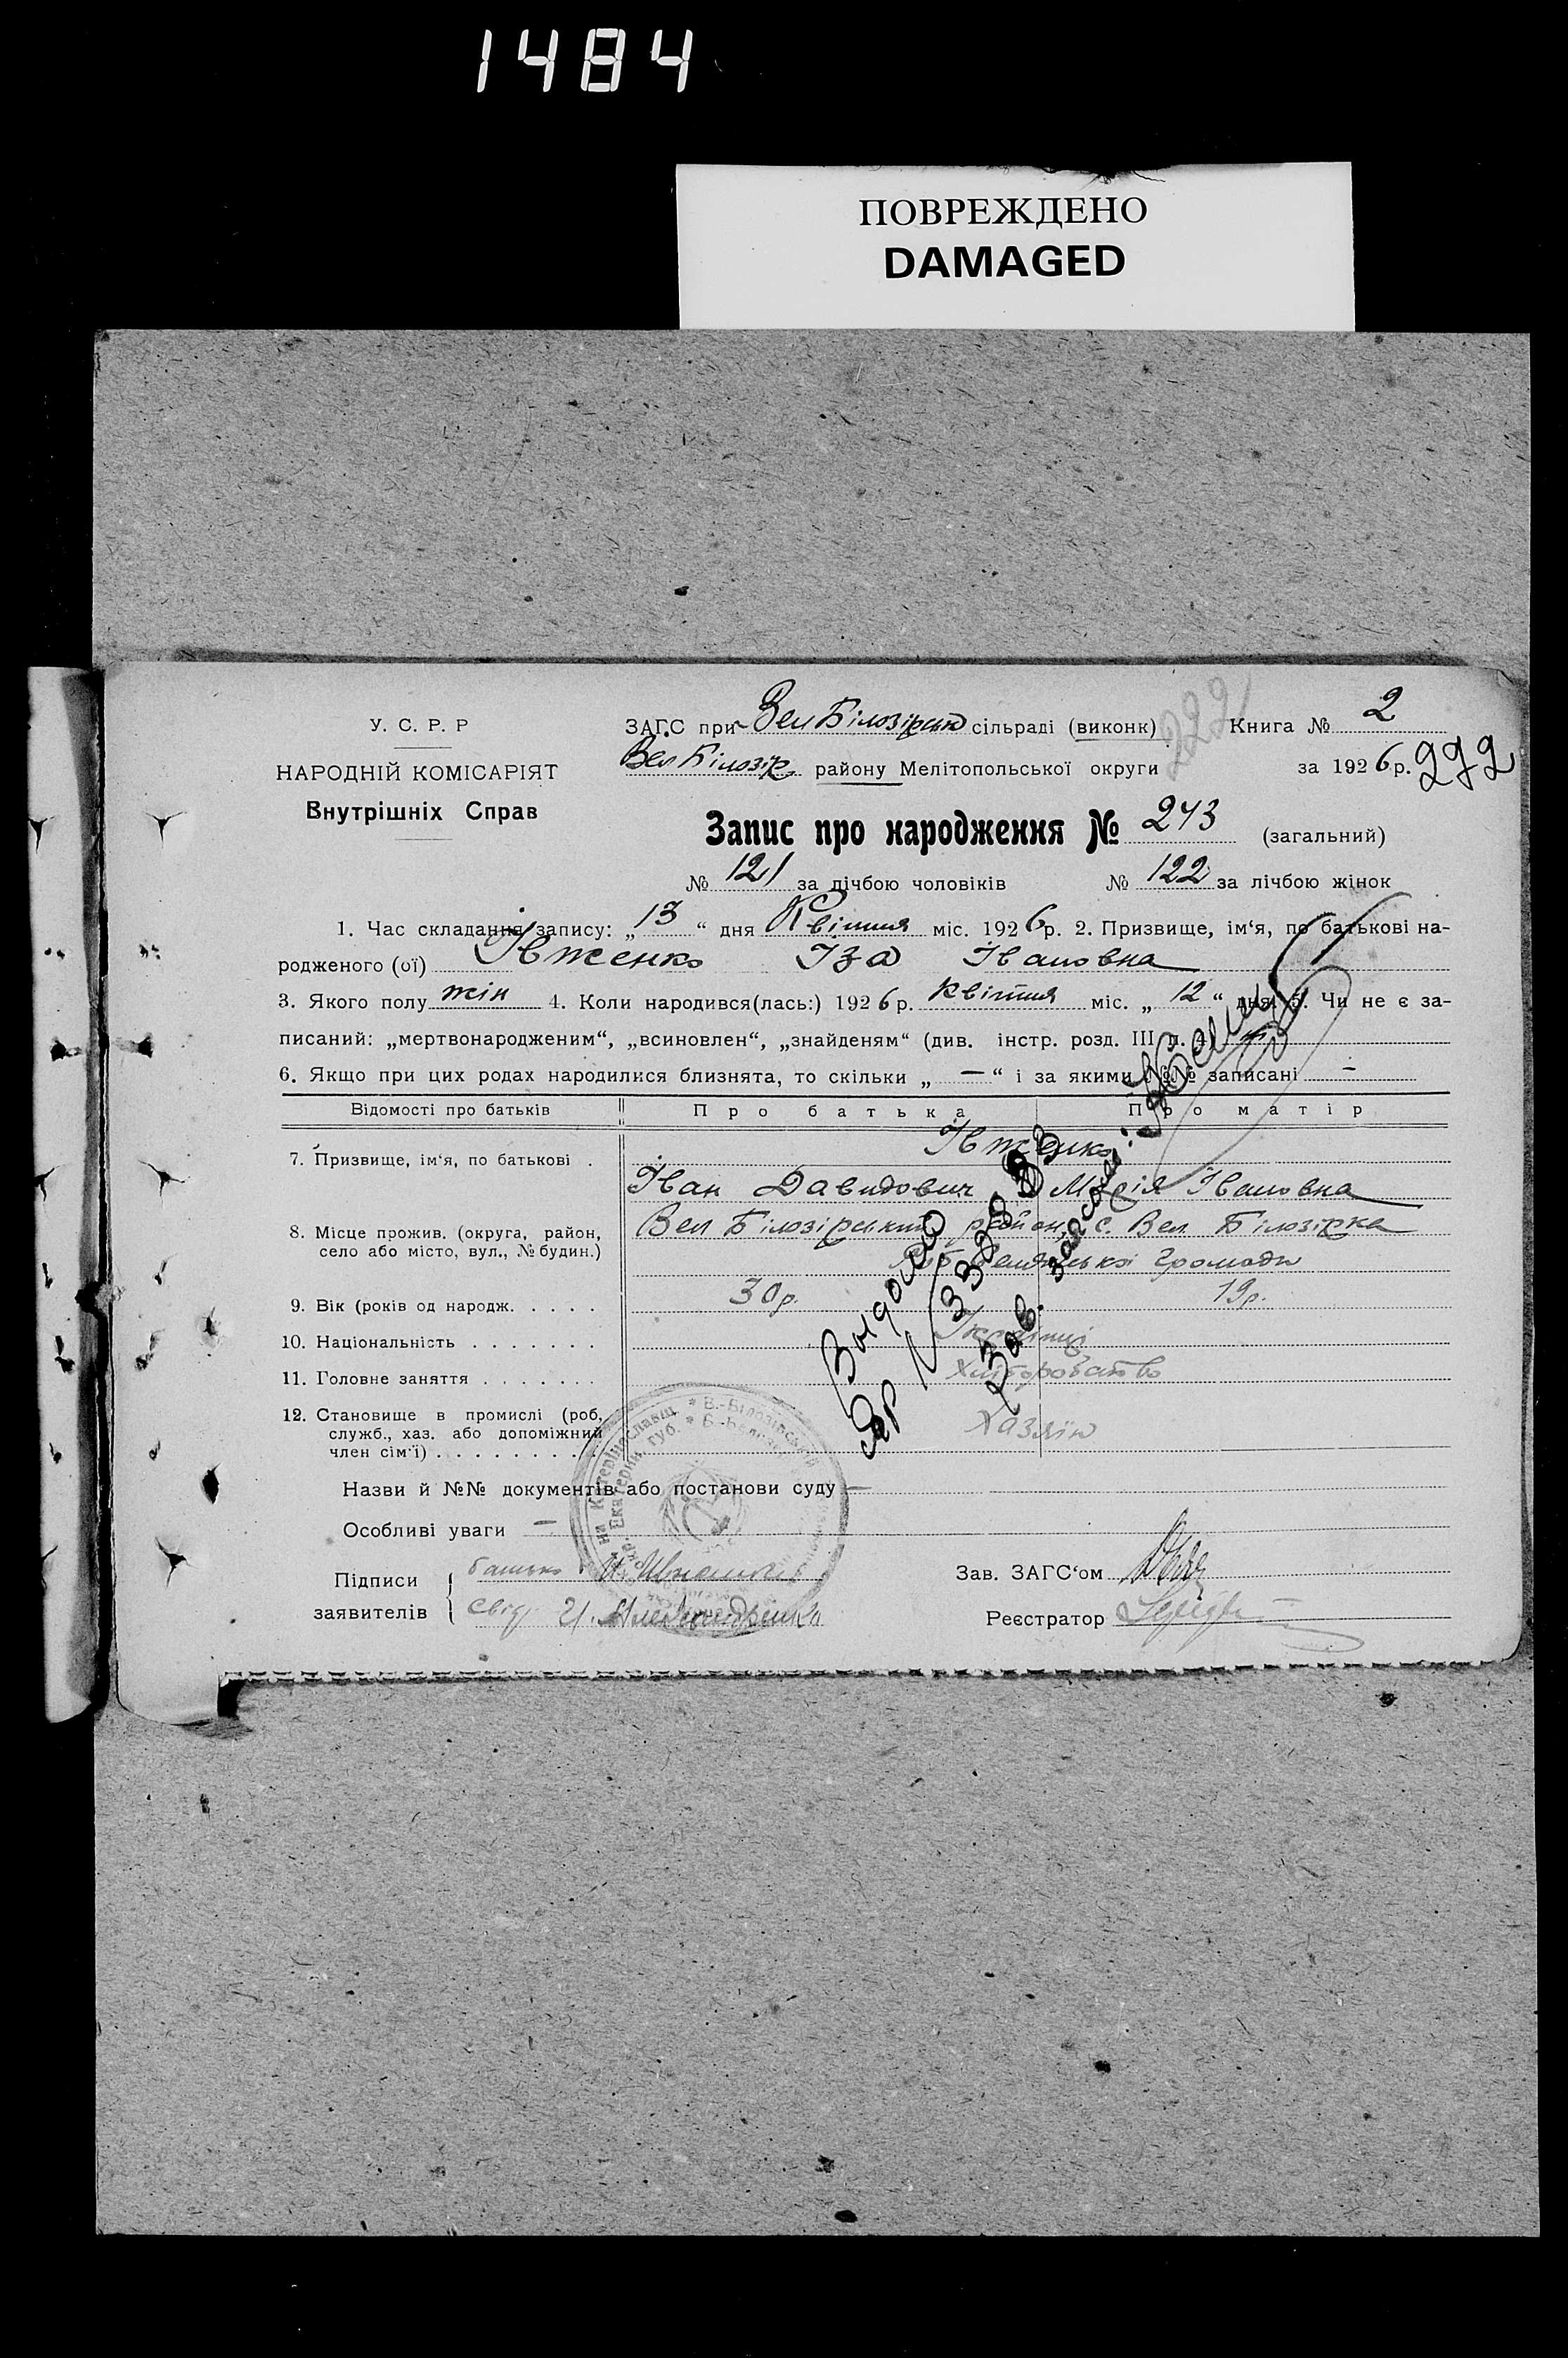 1484
ПОВРЕЖДЕНО
DAMAGED
У. С. Р. Р
НАРОДНІЙ КОМІСАРІЯТ
Внутрішніх Справ
ЗАГС при Вел Білозірськ сільраді (виконк) Книга № 2
222
Вел Білозір. району Мелітопольської округи за 1926 р. 292
Запис про народження № 243 (загальний)
№ 121 за лічбою чоловіків № 122 за лічбою жінок
1. Час складання запису: „ 13 “ дня Квітня міс. 1926 р. 2. Призвище, ім‘я, по батькові на-
родженого (ої) Івженко Іза Івановна
3. Якого полу жін 4. Коли народився(лась:) 1926 р. квітня міс. „ 12 “ дня. 5. Чи не є за-
писаний: „мертвонародженим“, „всиновлен“, „знайденям“ (див. інстр. розд. III п. 4)
6. Якщо при цих родах народилися близнята, то скільки „ — “ і за якими №№ записані —
Відомості про батьків Про батька Про матір
7. Призвище, ім‘я, по батькові . Івженко
Іван Давидович Марія Івановна
8. Місце прожив. (округа, район, Вел Білозірський район, с. Вел. Білозірка
село або місто, вул., № будин.) громади
9. Вік (років од народж. . . . . 30р. 19р.
10. Національність . . . . . . . Українці
11. Головне заняття . . . . . . . Хліборобство
12. Становище в промислі (роб,
служб., хаз. або допоміжний Хазяїн
член сім‘ї) . . . . . . . . . .
Видано
ЯР № 3338
Зав. загсом:
Назви й №№ документів або постанови суду —
Особливі уваги —
Підписи батько И. Зав. ЗАГС‘ом
заявителів свід. Александренко Реєстратор